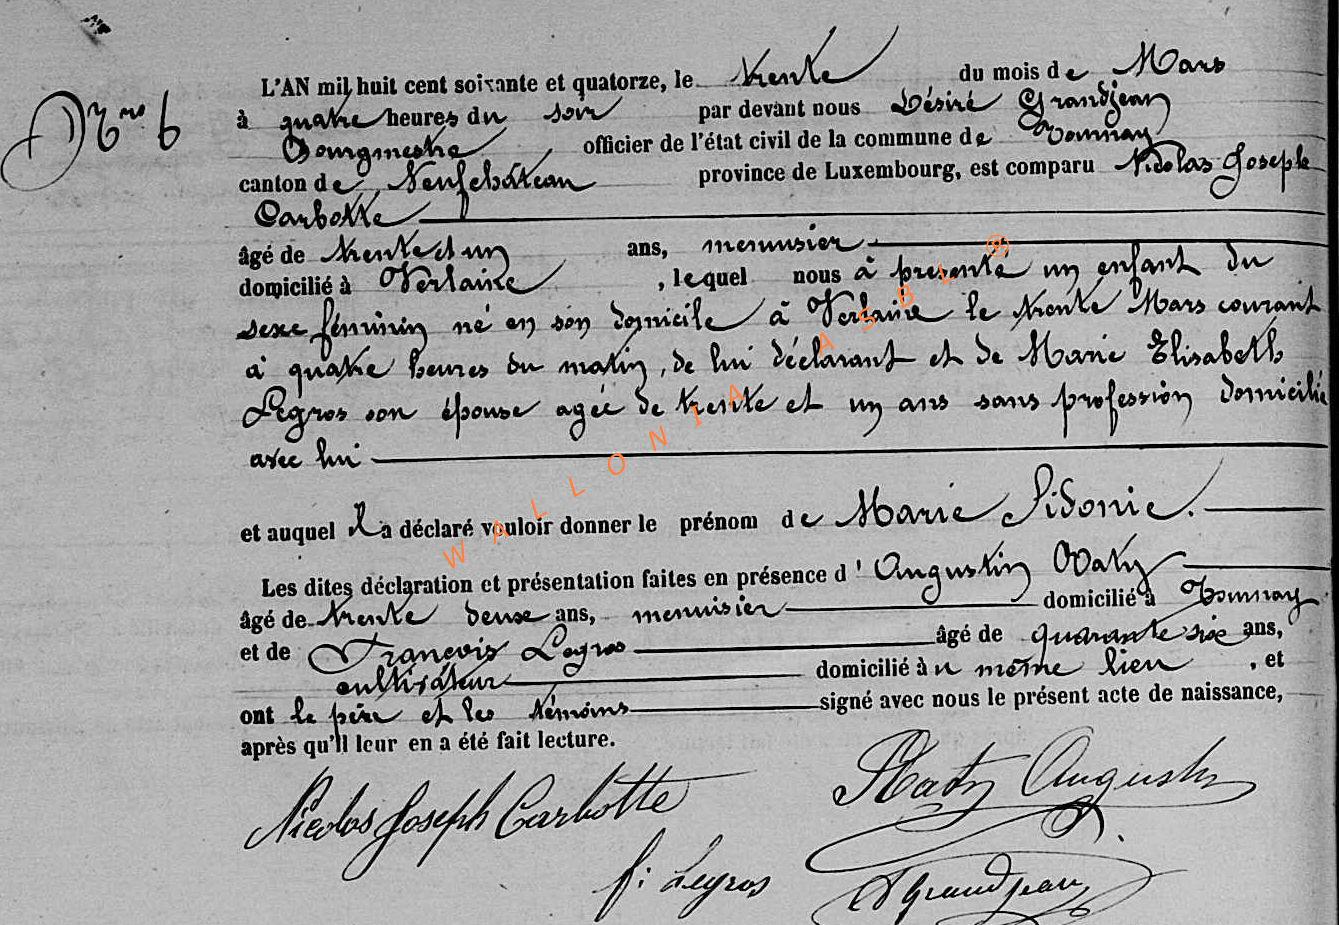 L'AN mil huit cent soixante et quatorze, le trente du mois de Mars
N.ro 6
à quatre heures du soir par devant nous Désiré Grandjean
Bourgmestre officier de l'état civil de la commune de Tournay
canton de Neufchâteau province de Luxembourg, est comparu Nicolas Joseph
Carbotte
âgé de trente et un ans, menuisier
domicilié à Verlaine, lequel nous à présenté un enfant du
sexe féminin né en son domicile à Verlaine le trente Mars courant
à quatre heures du matin, de lui déclarant et de Marie Elisabeth
Legros son épouse agée de trente et un ans sans profession domicilié
avec lui
et auquel il a déclaré vouloir donner le prénom de Marie Sidonie.
Les dites déclaration et présentation faites en présence d'Augustin Waty
âgé de trente deux ans, menuisier domicilié à Tournay
et de François Legros âgé de quarante six ans,
cultivateur domicilié au même lieu, et
ont le père et les témoins signé avec nous le présent acte de naissance,
après qu'il leur en a été fait lecture.
Nicolas Joseph Carbotte Waty Augustin
f: Legros D Grandjean
WALLONIA ASBL ®